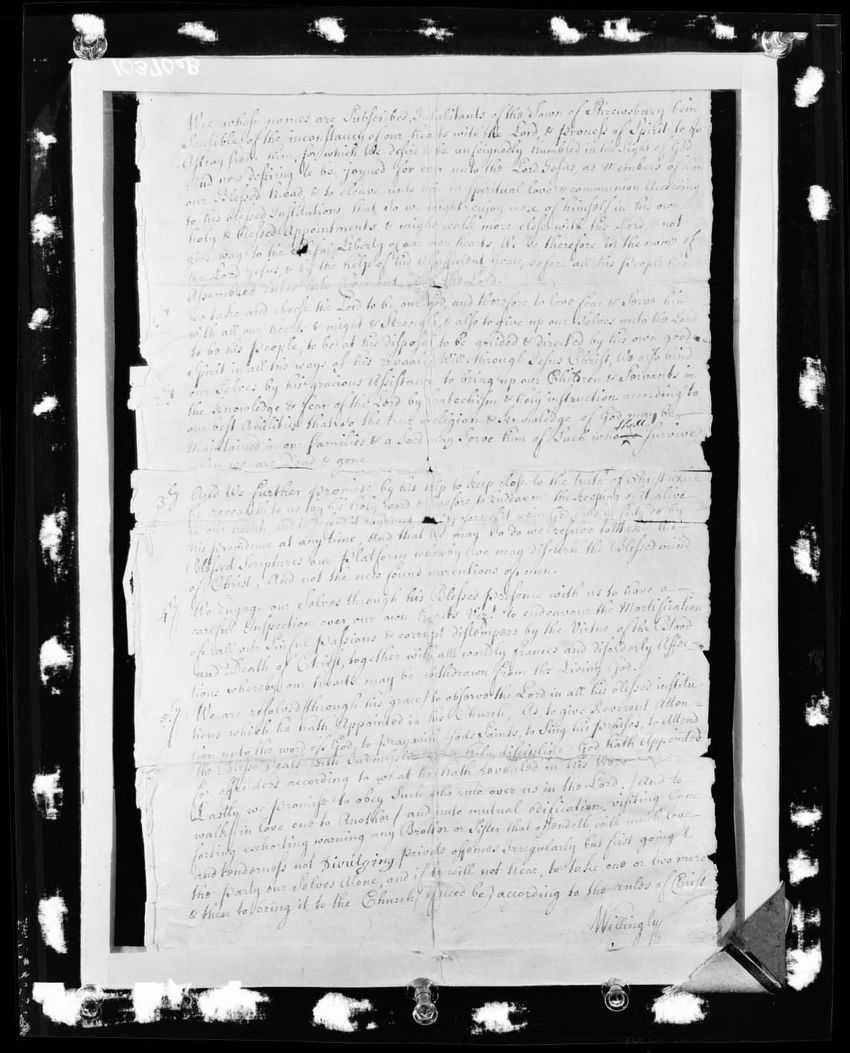 10370aB
Wee whose names are Subscribed, Inhabitants of the Town of Shrewsbury bein
Sensible of the inconstancy of our hearts with the Lord, & proness of Spirit to go
Astray from him, for which We desire to be unfeignedly humbled in the Sight of God
and now desiring to be joyned for ever unto the Lord Jesus, as members of him
our Blessed Head, & to cleave unto him in Speritual love & communion According
to his blessed Institutions, that So we might enjoy more of himself in his own
holy & Blessed Appointments, & might walk more close with the Lord, & not
give way to the Sinful Liberty of our own hearts, We do therefore in the name of
the Lord Jesus, & by the help of his Alsufficient Grace, before all his People here
Assembled Enter into Covenant with the Lord.
To take and choose the Lord to be our God, and therefore to love fear & Serve him
with all our hearts & might & Strength, & also to give up our Selves unto the Lord
to be his People, to be at his dispose to be guided & directed by his own good
Spirit in all the ways of his revealed Will through Jesus Christ, We also bind
our Selves by his gracious Assistance to bring up our Children & Servants in
the knowledge & fear of the Lord by Catechism & holy instruction according to
our best Abilities that So the true Religion & knowledge of God may be
Maintained in our families & a Seed may Serve him of Such who shall Survive
when we are Dead & gone
3ly And We further promise by his help to keep close to the truth of Christ which
he revealeth to us by his holy word & therefore to Endeavour the keeping of it alive
in our hearts and to defend it against
his providence at any time, And that we may So do we resolve to the
Blessed Scriptures our Platform whereby we may discern the Blessed mind
of Christ, And not the new found inventions of men.
4ly We Engage our Selves through his Blessed presence with us to have a
careful Inspection over our own hearts Viz.t to endeavour the Mortification
of all our Sinful Passions & corrupt distempers by the Virtue of the Blood
and Death of Christ, together with all worldly frames and disorderly Affec-
tions whereby our hearts may be withdrawn from the Living God.
5ly We are resolved (through his grace) to observe the Lord in all his blessed institu-
tions which he hath Appointed in his Church, As to give Reverent Atten-
tion unto the word of God, to pray with Gods Saints, to Sing his praises, to Attend
the Seals with Submission to holy discipline God hath Appointed
for offenders according to what he hath revealed in his Word
Lastly we promise to obey Such who rule over us in the Lord / And to
walk in love one to Another / and unto mutual edification, visiting Com
forting exhorting warning any Brother or Sister that offendeth with much love
and tenderness not Divulging private offences irregularly but first going to
the party our Selves Alone, and if he will not hear, to take one or two more
& then to bring it to the Church (if need be) according to the rules of Christ
Willingly